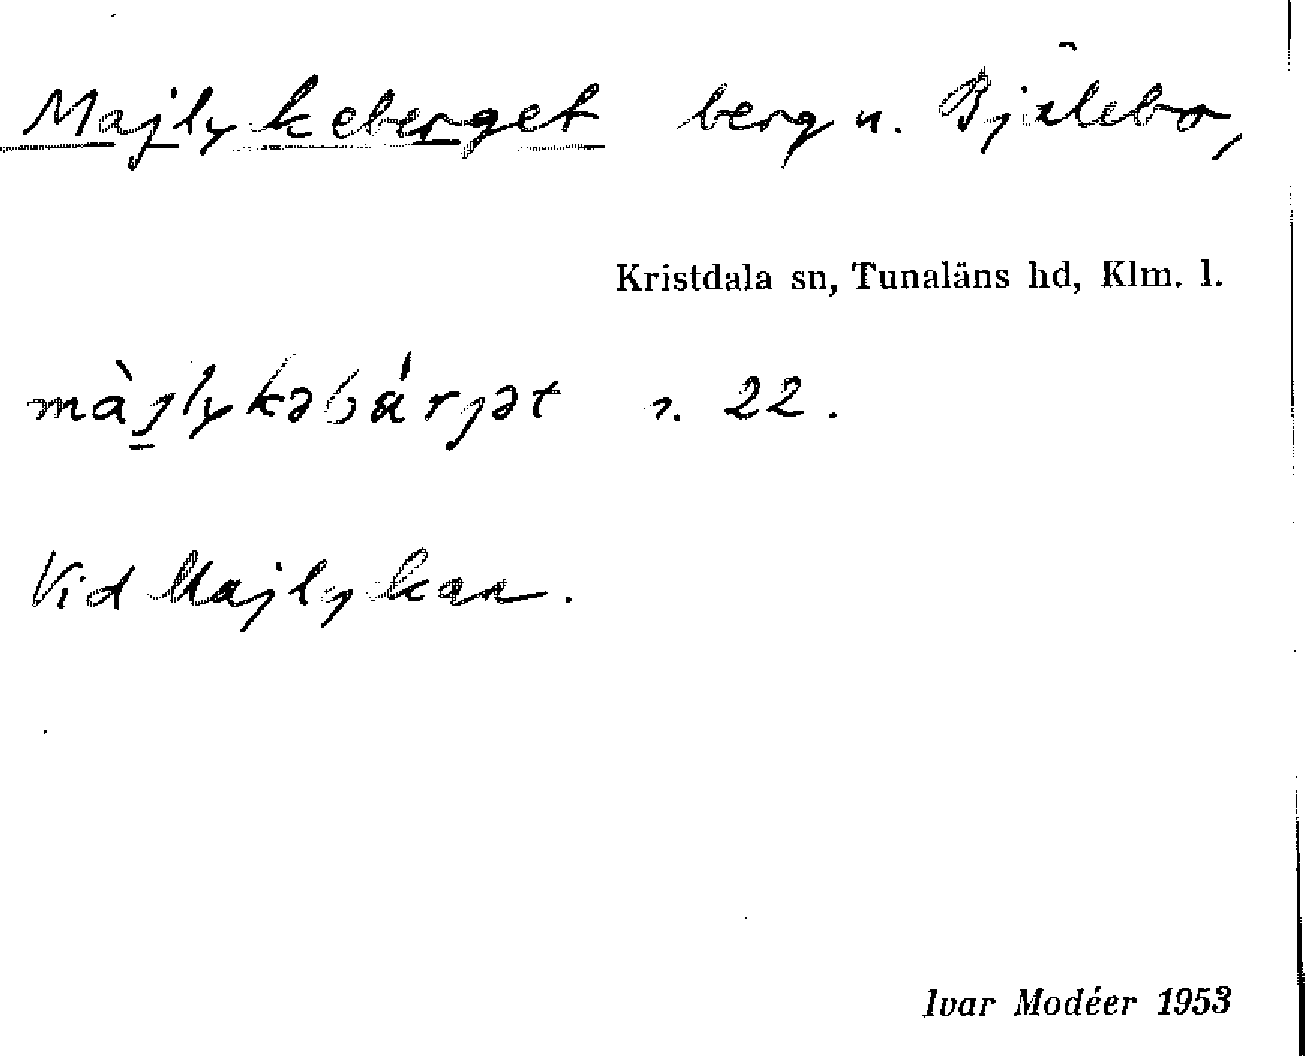 Majlykeberget berg n. Bjälebo,
Kristdala sn, Tunaläns hd, Klm. l.
màjlykəbárjət s. 22.
Vid Majlykan.
Ivar Modéer 1953